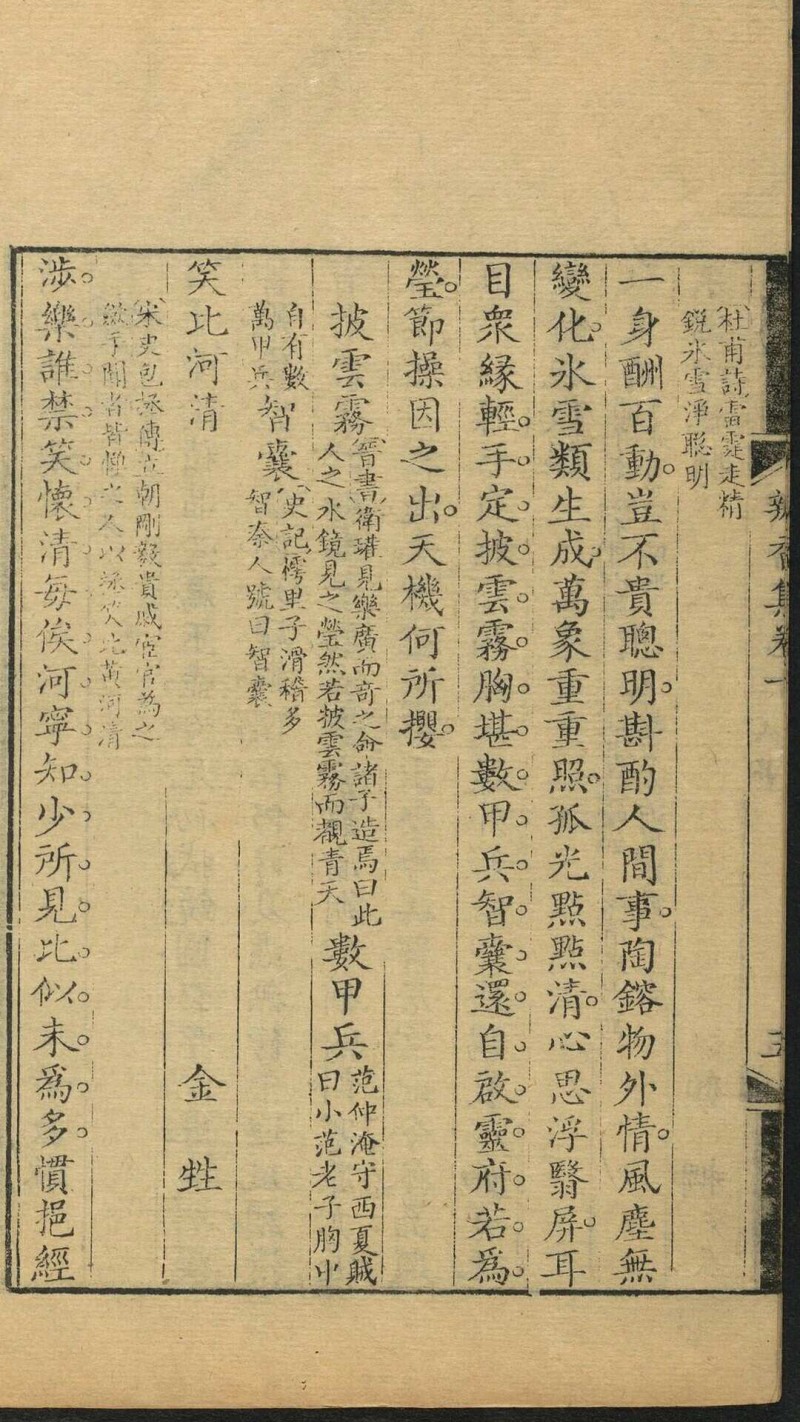 杜甫詩雷霆走精
銳氷雪淨聰明
一身酬百動豈不貴聰明斟酌人間事陶鎔物外情風塵無
變化氷雪類生成萬象重重照孤光點點清心思浮翳屏耳
目衆緣輕手定披雲霧胸堪數甲兵智囊還自啟靈府若爲
瑩節操因之出天機何所攖
披雲霧
晉書衛瓘見樂廣而奇之命諸子造焉曰此
人之水鏡見之瑩然若披雲霧而覩青天
數甲兵
范仲淹守西夏賊
曰小范老子胸中
自有數
萬甲兵
智囊
史記樗里子滑稽多
智秦人號曰智囊
笑比河清
金甡
宋史包拯傳立朝剛毅貴戚宦官爲之
歛手聞者皆憚之人以拯笑比黃河清
涉樂誰禁笑懷清每俟河寧知少所見比似未爲多慣挹經
集卷一
五